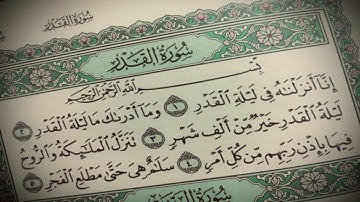 سُورَةُ القَدْرِ
سُورَةُ القَدْرِ
بِسْمِ اللَّهِ الرَّحْمَٰنِ الرَّحِيمِ
إِنَّا أَنزَلْنَٰهُ فِى لَيْلَةِ ٱلْقَدْرِ ١ وَمَآ أَدْرَىٰكَ مَا لَيْلَةُ ٱلْقَدْرِ ٢
لَيْلَةُ ٱلْقَدْرِ خَيْرٌ مِّنْ أَلْفِ شَهْرٍ ٣ تَنَزَّلُ ٱلْمَلَٰٓئِكَةُ وَٱلرُّوحُ
فِيهَا بِإِذْنِ رَبِّهِم مِّن كُلِّ أَمْرٍ ٤ سَلَٰمٌ هِىَ حَتَّىٰ مَطْلَعِ ٱلْفَجْرِ ٥